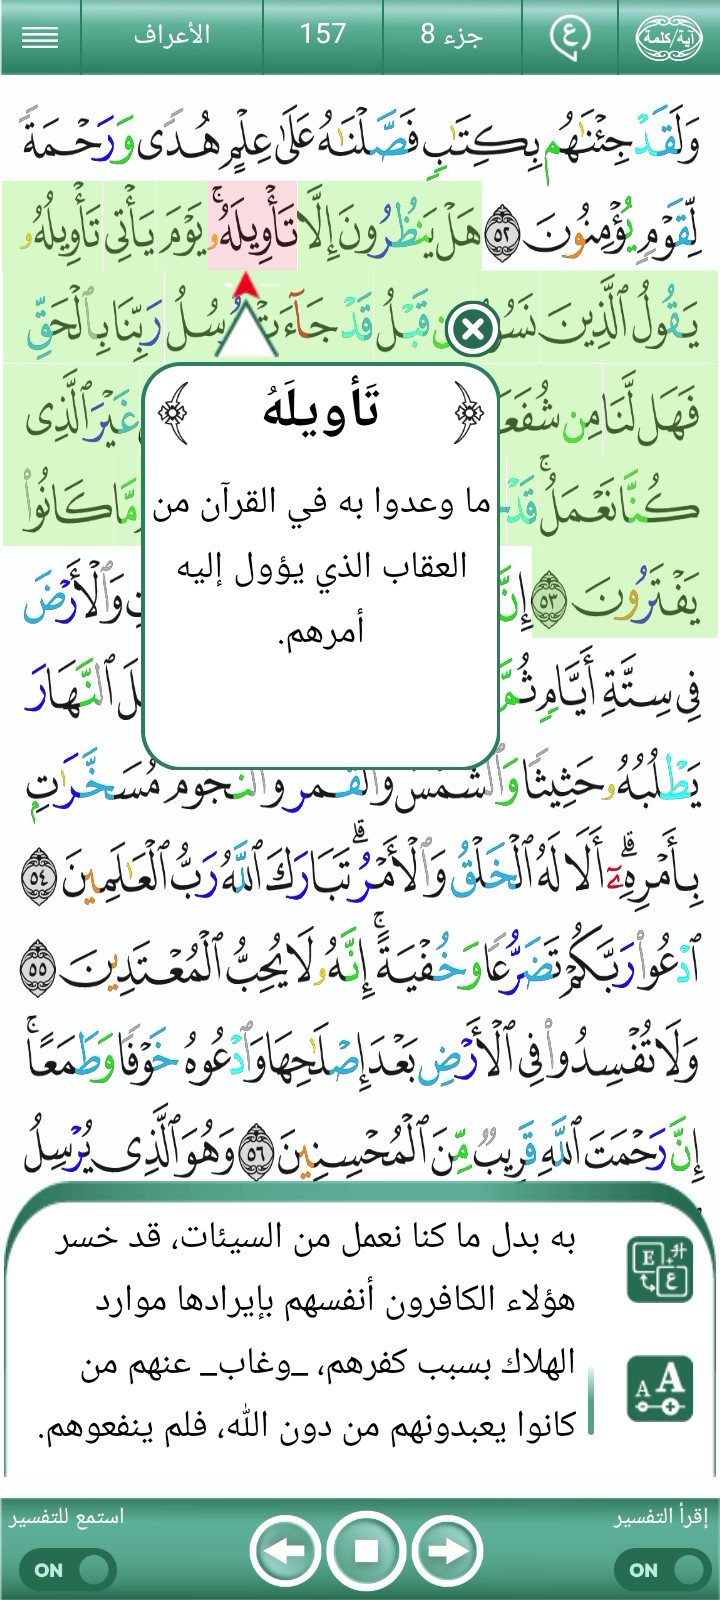 الأعراف
157
جزء 8
آية/كلمة
وَلَقَدْ جِئْنَٰهُم بِكِتَٰبٍ فَصَّلْنَٰهُ عَلَىٰ عِلْمٍ هُدًى وَرَحْمَةً
لِّقَوْمٍ يُؤْمِنُونَ ٥٢ هَلْ يَنظُرُونَ إِلَّا تَأْوِيلَهُۥ ۚ يَوْمَ يَأْتِى تَأْوِيلُهُۥ
يَقُولُ ٱلَّذِينَ نَسُ قَبْلُ قَدْ جَآءَتْ رُسُلُ رَبِّنَا بِٱلْحَقِّ
فَهَل لَّنَا مِن شُفَعَ غَيْرَ ٱلَّذِى
كُنَّا نَعْمَلُ ۚ قَدْ مَّا كَانُوا۟
يَفْتَرُونَ ٥٣ إِنَّ وَٱلْأَرْضَ
فِى سِتَّةِ أَيَّامٍ ثُمَّ ٱلنَّهَارَ
يَطْلُبُهُۥ حَثِيثًا وَٱلشَّمْسَ وَٱلْقَمَرَ وَٱلنُّجُومَ مُسَخَّرَٰتٍ
بِأَمْرِهِۦٓ ۗ أَلَا لَهُ ٱلْخَلْقُ وَٱلْأَمْرُ ۗ تَبَارَكَ ٱللَّهُ رَبُّ ٱلْعَٰلَمِينَ ٥٤
ٱدْعُوا۟ رَبَّكُمْ تَضَرُّعًا وَخُفْيَةً ۚ إِنَّهُۥ لَا يُحِبُّ ٱلْمُعْتَدِينَ ٥٥
وَلَا تُفْسِدُوا۟ فِى ٱلْأَرْضِ بَعْدَ إِصْلَٰحِهَا وَٱدْعُوهُ خَوْفًا وَطَمَعًا ۚ
إِنَّ رَحْمَتَ ٱللَّهِ قَرِيبٌ مِّنَ ٱلْمُحْسِنِينَ ٥٦ وَهُوَ ٱلَّذِى يُرْسِلُ
تَأويلَهُ
ما وعدوا به في القرآن من
العقاب الذي يؤول إليه
أمرهم.
به بدل ما كنا نعمل من السيئات، قد خسر
هؤلاء الكافرون أنفسهم بإيرادها موارد
الهلاك بسبب كفرهم، _وغاب_ عنهم من
كانوا يعبدونهم من دون الله، فلم ينفعوهم.
إقرأ التفسير
استمع للتفسير
ON
ON